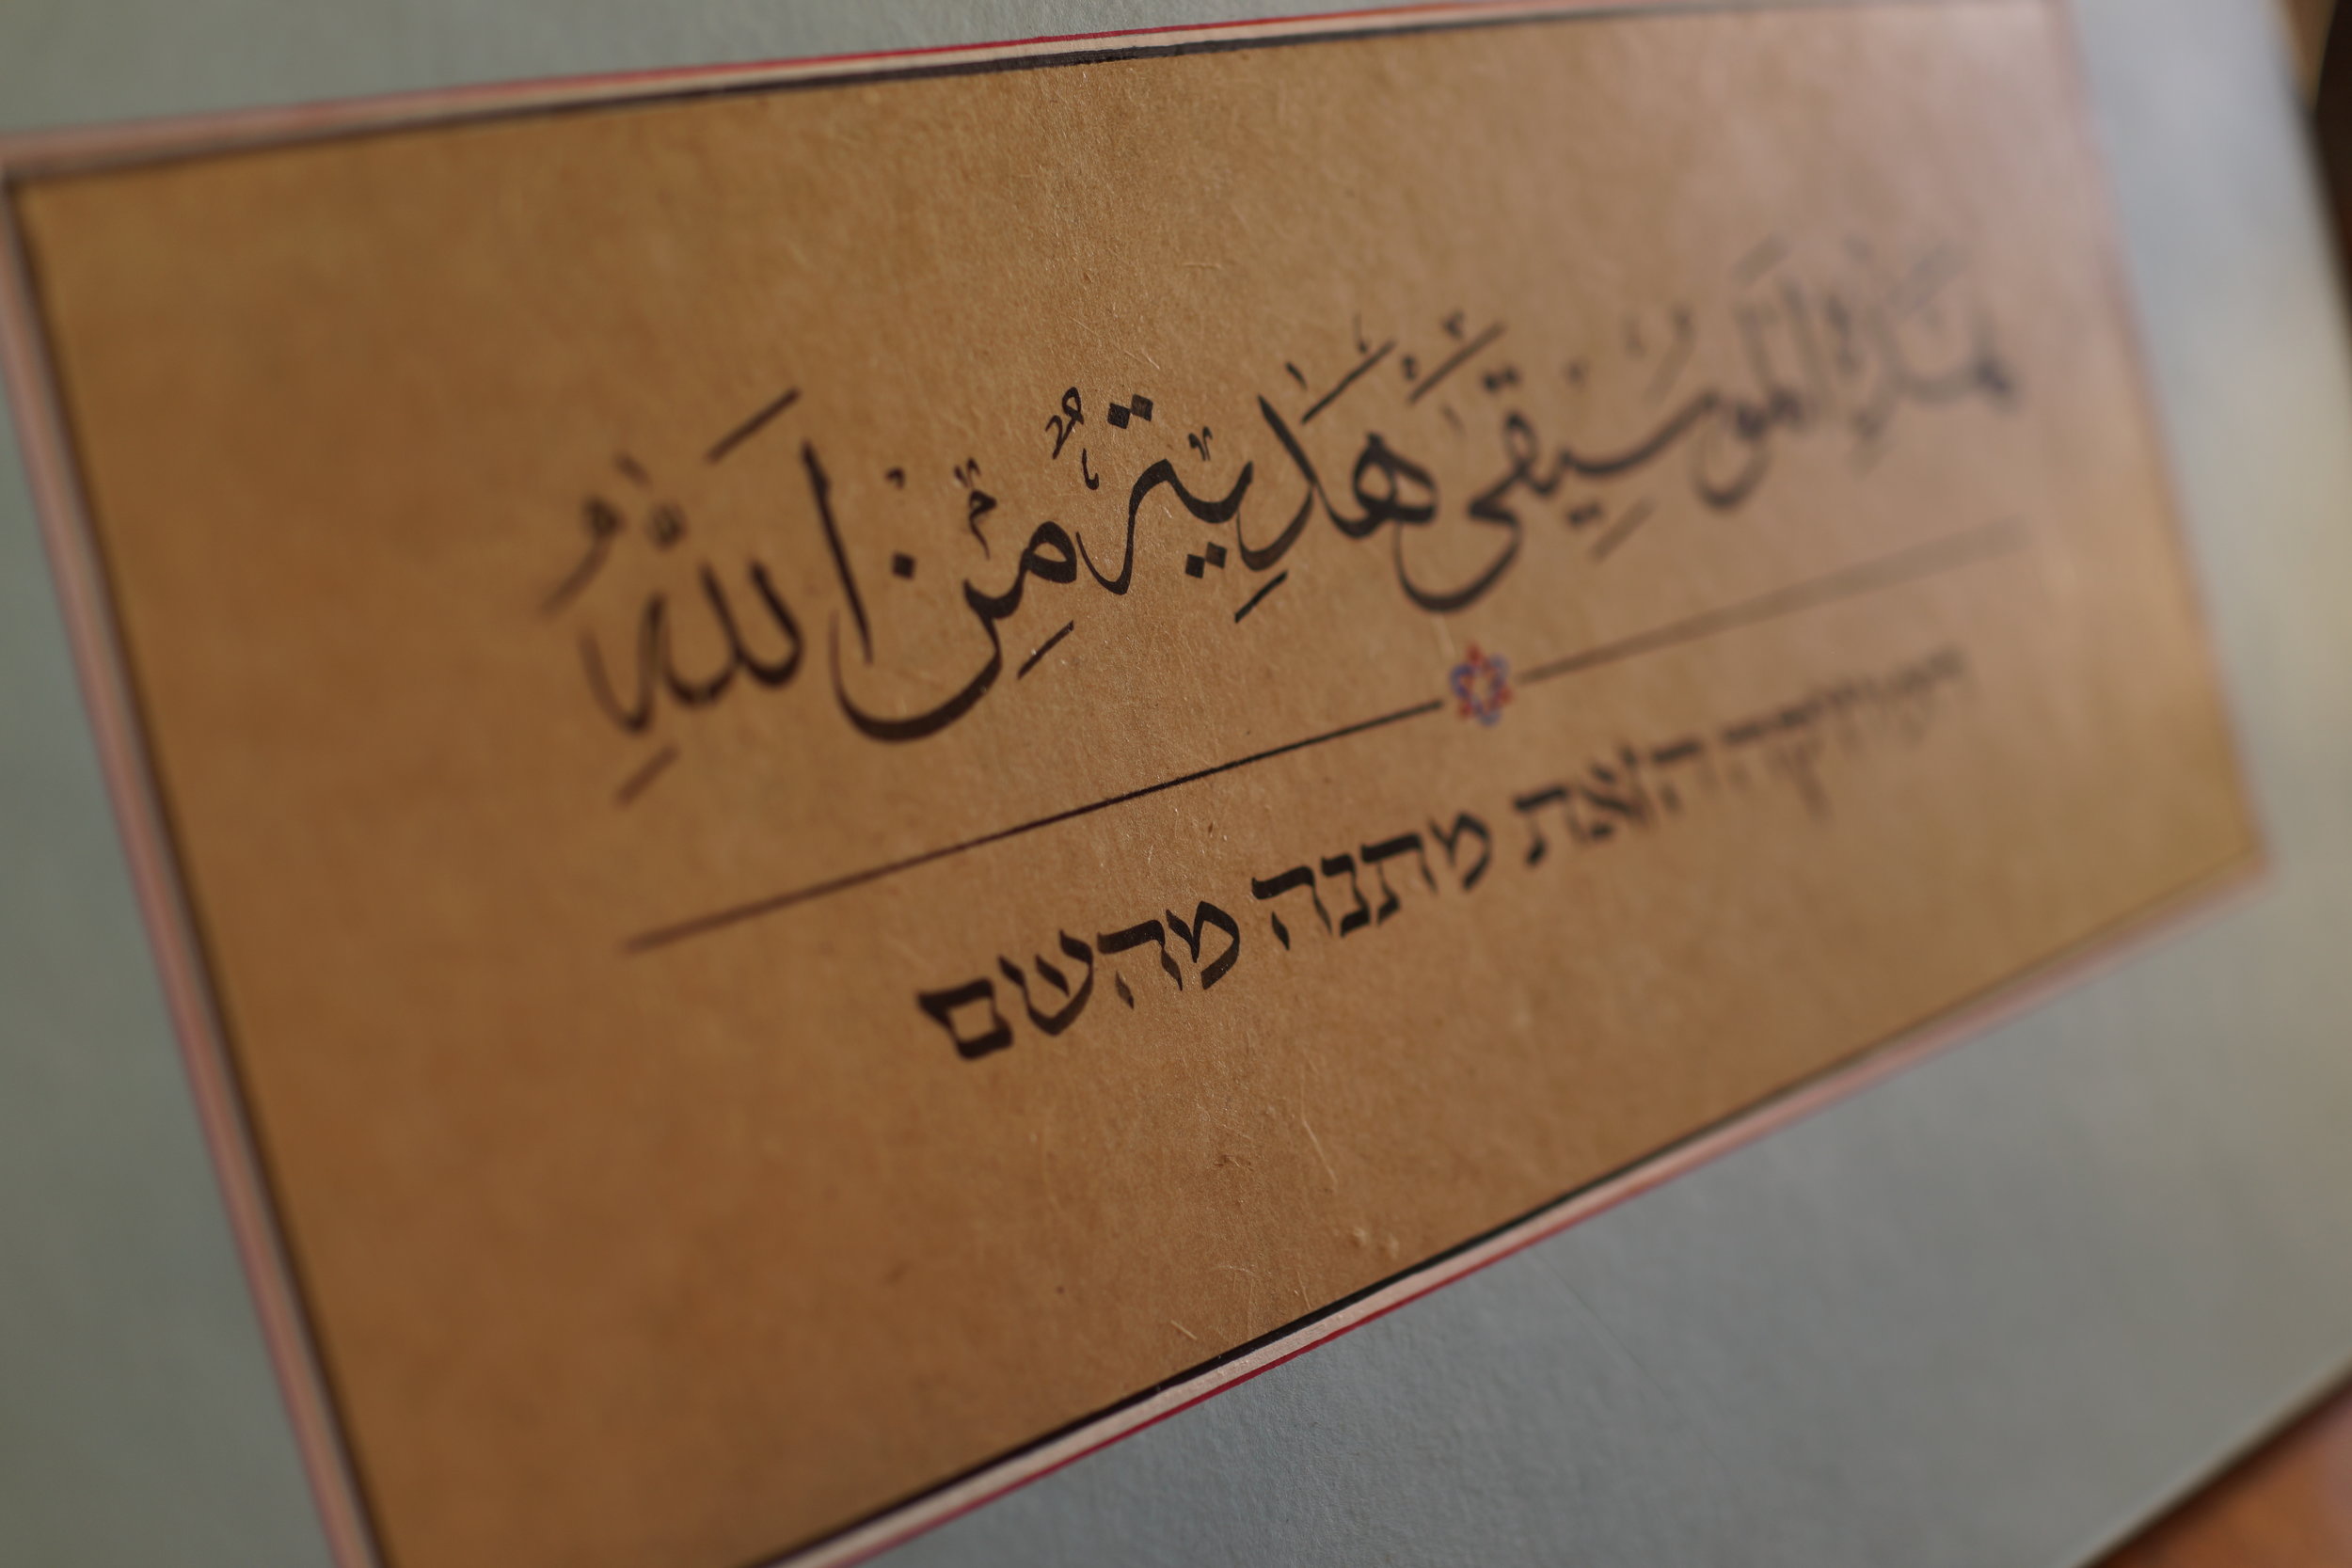 هَذِهِ الْمُوسِيقَى هَدِيَّةٌ مِّنَ اللَّهِ
המוזיקה הזאת מתנה מהשם